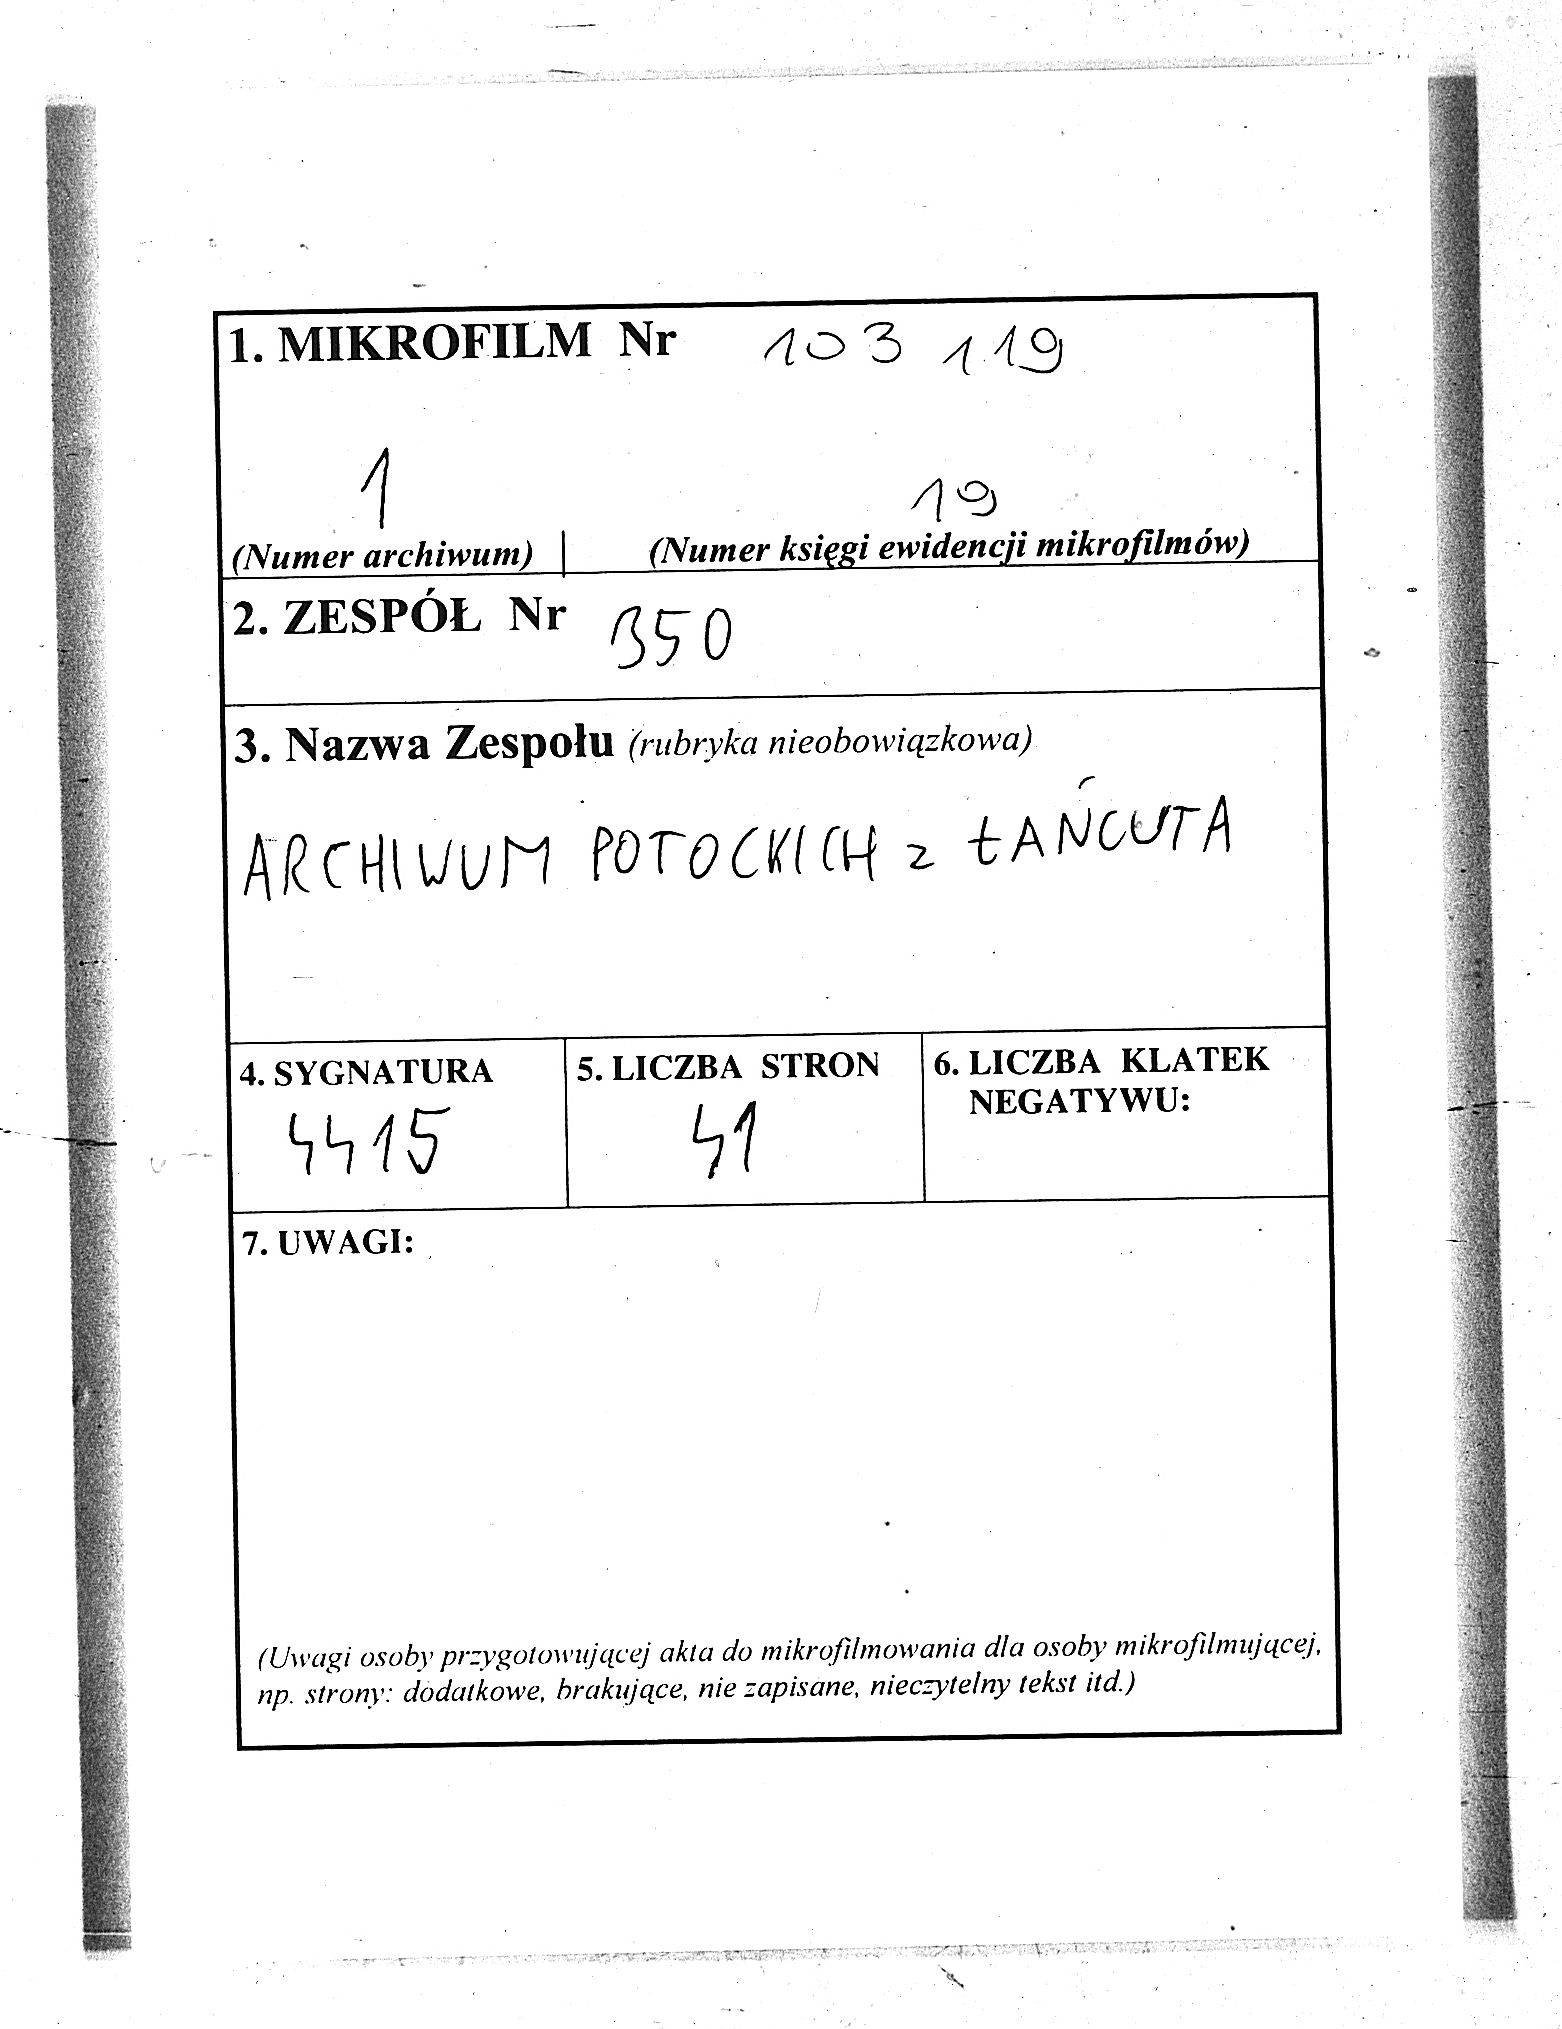 1. MIKROFILM Nr 103 119
1 19
(Numer archiwum) (Numer księgi ewidencji mikrofilmów)
2. ZESPÓŁ Nr 350
3. Nazwa Zespołu (rubryka nieobowiązkowa)
ARCHIWUM POTOCKICH z ŁAŃCUTA
4. SYGNATURA 5. LICZBA STRON 6. LICZBA KLATEK
NEGATYWU:
4415 41
7. UWAGI:
(Uwagi osoby przygotowującej akta do mikrofilmowania dla osoby mikrofilmującej,
np. strony: dodatkowe, brakujące, nie zapisane, nieczytelny tekst itd.)